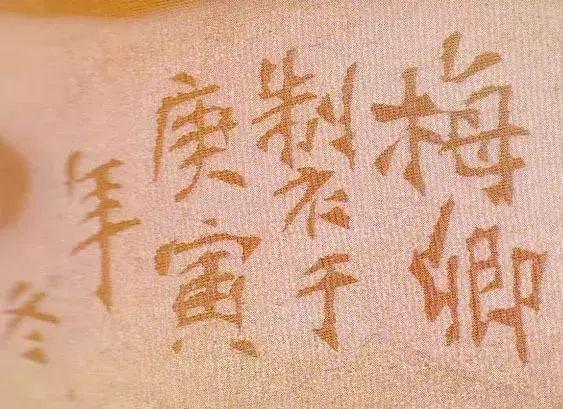 梅卿
製于
庚寅
年
冬